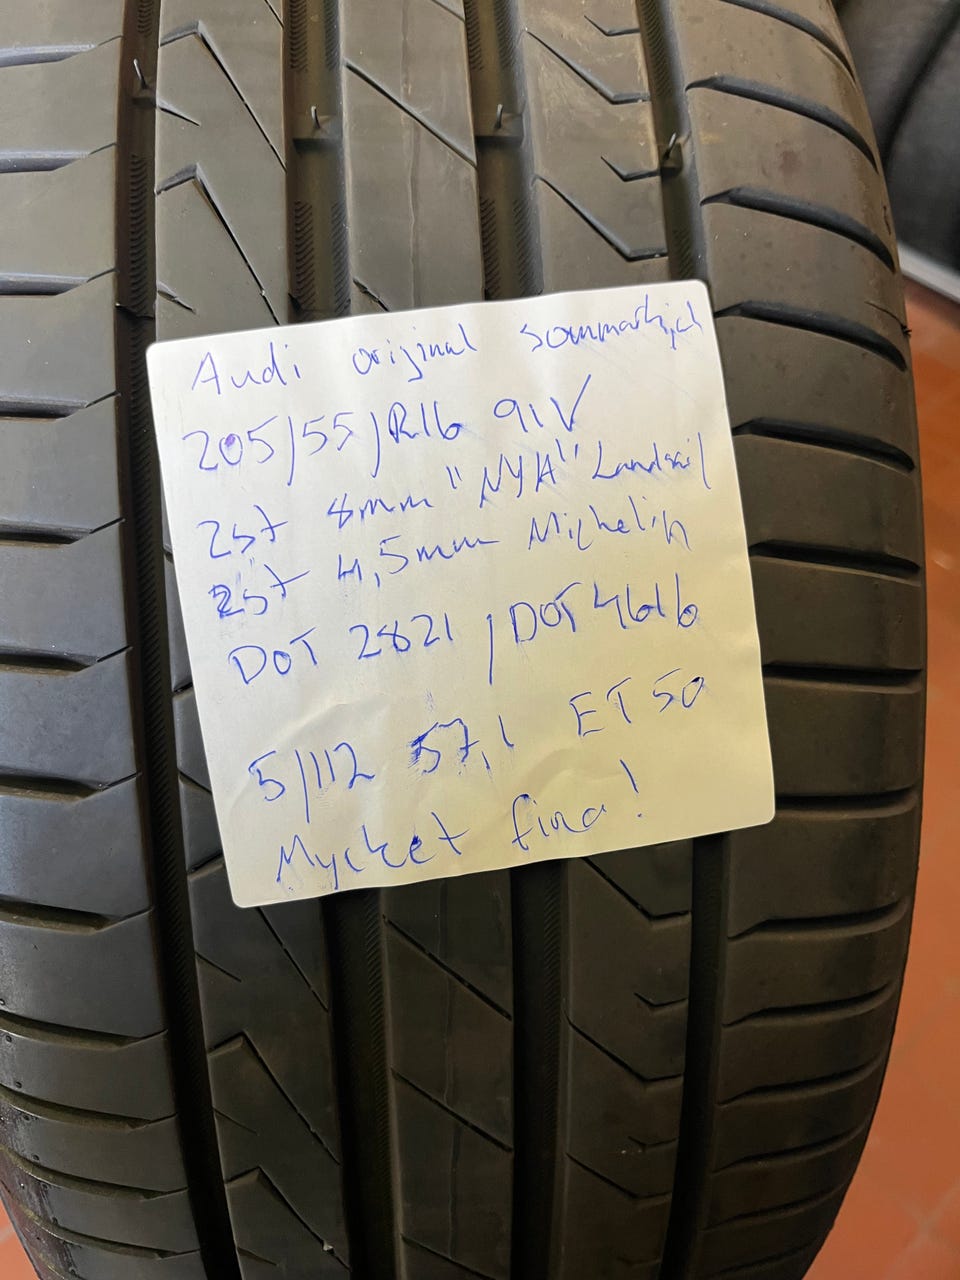 Audi original Sommarhjul
205/55/R16 91V
2st 8mm "NYA" Landsail
2st 4,5mm Michelin
DOT 2821 / DOT 4616
5/112 57,1 ET 50
Mycket fina!